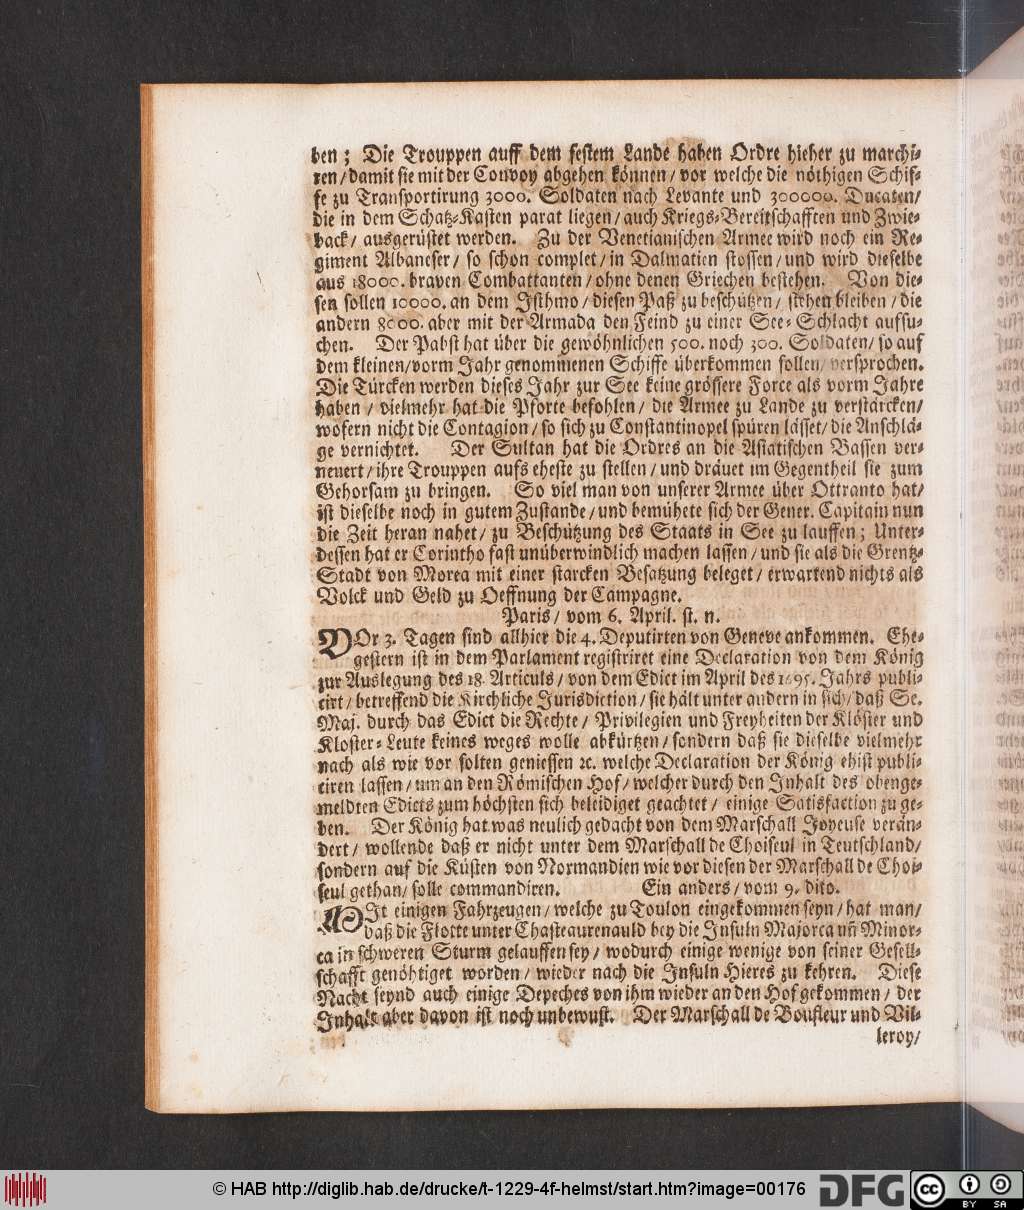 ben ; Die Trouppen auff dem festem Lande haben Ordre hieher zu marchi-
ren / damit sie mit der Convoy abgehen können / vor welche die nöthigen Schif-
fe zu Transportirung 3000. Soldaten nach Levante und 300000. Ducaten /
die in dem Schatz-Kasten parat liegen / auch Kriegs-Bereitschafften und Zwie-
back / ausgerüstet werden. Zu der Venetianischen Armee wird noch ein Re-
giment Albaneser / so schon complet / in Dalmatien stossen / und wird dieselbe
aus 18000. braven Combattanten / ohne denen Griechen bestehen. Von die-
sen sollen 10000. an dem Isthmo / diesen Paß zu beschützen / stehen bleiben / die
andern 8000. aber mit der Armada den Feind zu einer See-Schlacht aufsu-
chen. Der Pabst hat über die gewöhnlichen 500. noch 300. Soldaten / so auf
dem kleinen / vorm Jahr genommenen Schiffe überkommen sollen / versprochen.
Die Türcken werden dieses Jahr zur See keine grössere Force als vorm Jahre
haben / vielmehr hat die Pforte befohlen / die Armee zu Lande zu verstärcken /
wofern nicht die Contagion / so sich zu Constantinopel spüren lässet / die Anschlä-
ge vernichtet. Der Sultan hat die Ordres an die Asiatischen Bassen ver-
neuert / ihre Trouppen aufs eheste zu stellen / und dräuet im Gegentheil sie zum
Gehorsam zu bringen. So viel man von unserer Armee über Ottranto hat /
ist dieselbe noch in gutem Zustande / und bemühete sich der Gener. Capitain nun
die Zeit heran nahet / zu Beschützung des Staats in See zu lauffen ; Unter-
dessen hat er Corintho fast unüberwindlich machen lassen / und sie als die Grentz-
Stadt von Morea mit einer starcken Besatzung beleget / erwartend nichts als
Volck und Geld zu Oeffnung der Campagne.
Paris / vom 6. April. st. n.
VOr 3. Tagen sind allhier die 4. Deputirten von Geneve ankommen. Ehe-
gestern ist in dem Parlament registriret eine Declaration von dem König
zur Auslegung des 18. Articuls / von dem Edict im April des 1695. Jahrs publi-
cirt / betreffend die Kirchliche Jurisdiction / sie hält unter andern in sich / daß Se.
Maj. durch das Edict die Rechte / Privilegien und Freyheiten der Klöster und
Kloster-Leute keines weges wolle abkürtzen / sondern daß sie dieselbe vielmehr
nach als wie vor solten geniessen ꝛc. welche Declaration der König ehist publi-
ciren lassen / um an den Römischen Hof / welcher durch den Inhalt des obenge-
meldten Edicts zum höchsten sich beleidiget geachtet / einige Satisfaction zu ge-
ben. Der König hat was neulich gedacht von dem Marschall Joyeuse verän-
dert / wollende daß er nicht unter dem Marschall de Choiseul in Teutschland /
sondern auf die Küsten von Normandien wie vor diesen der Marschall de Choi-
seul gethan / solle commandiren. Ein anders / vom 9. dito.
MIt einigen Fahrzeugen / welche zu Toulon eingekommen seyn / hat man /
daß die Flotte unter Chasteaurenauld bey die Insuln Majorca uñ Minor-
ca in schweren Sturm gelauffen sey / wodurch einige wenige von seiner Gesell-
schafft genöhtiget worden / wieder nach die Insuln Hieres zu kehren. Diese
Nacht seynd auch einige Depeches von ihm wieder an den Hof gekommen / der
Inhalt aber davon ist noch unbewust. Der Marschall de Boufleur und Vil-
leroy /
© HAB http://diglib.hab.de/drucke/t-1229-4f-helmst/start.htm?image=00176
DFG
cc
BY SA